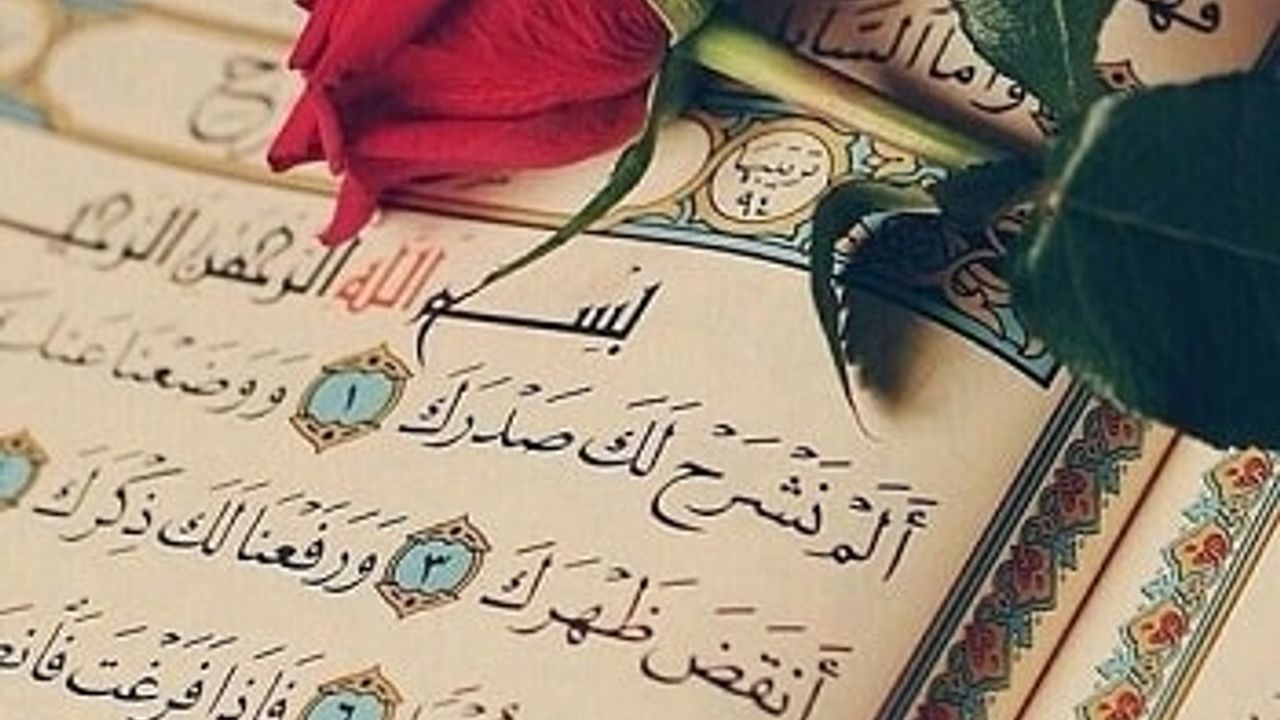 وأما السا
ترتيبها
٩٤
بسم الله الرحمن الرحيم
أَلَمْ نَشْرَحْ لَكَ صَدْرَكَ ١ وَوَضَعْنَا عَنكَ
أَنقَضَ ظَهْرَكَ ٣ وَرَفَعْنَا لَكَ ذِكْرَكَ
٦ فَإِذَا فَرَغْتَ فَانصَ